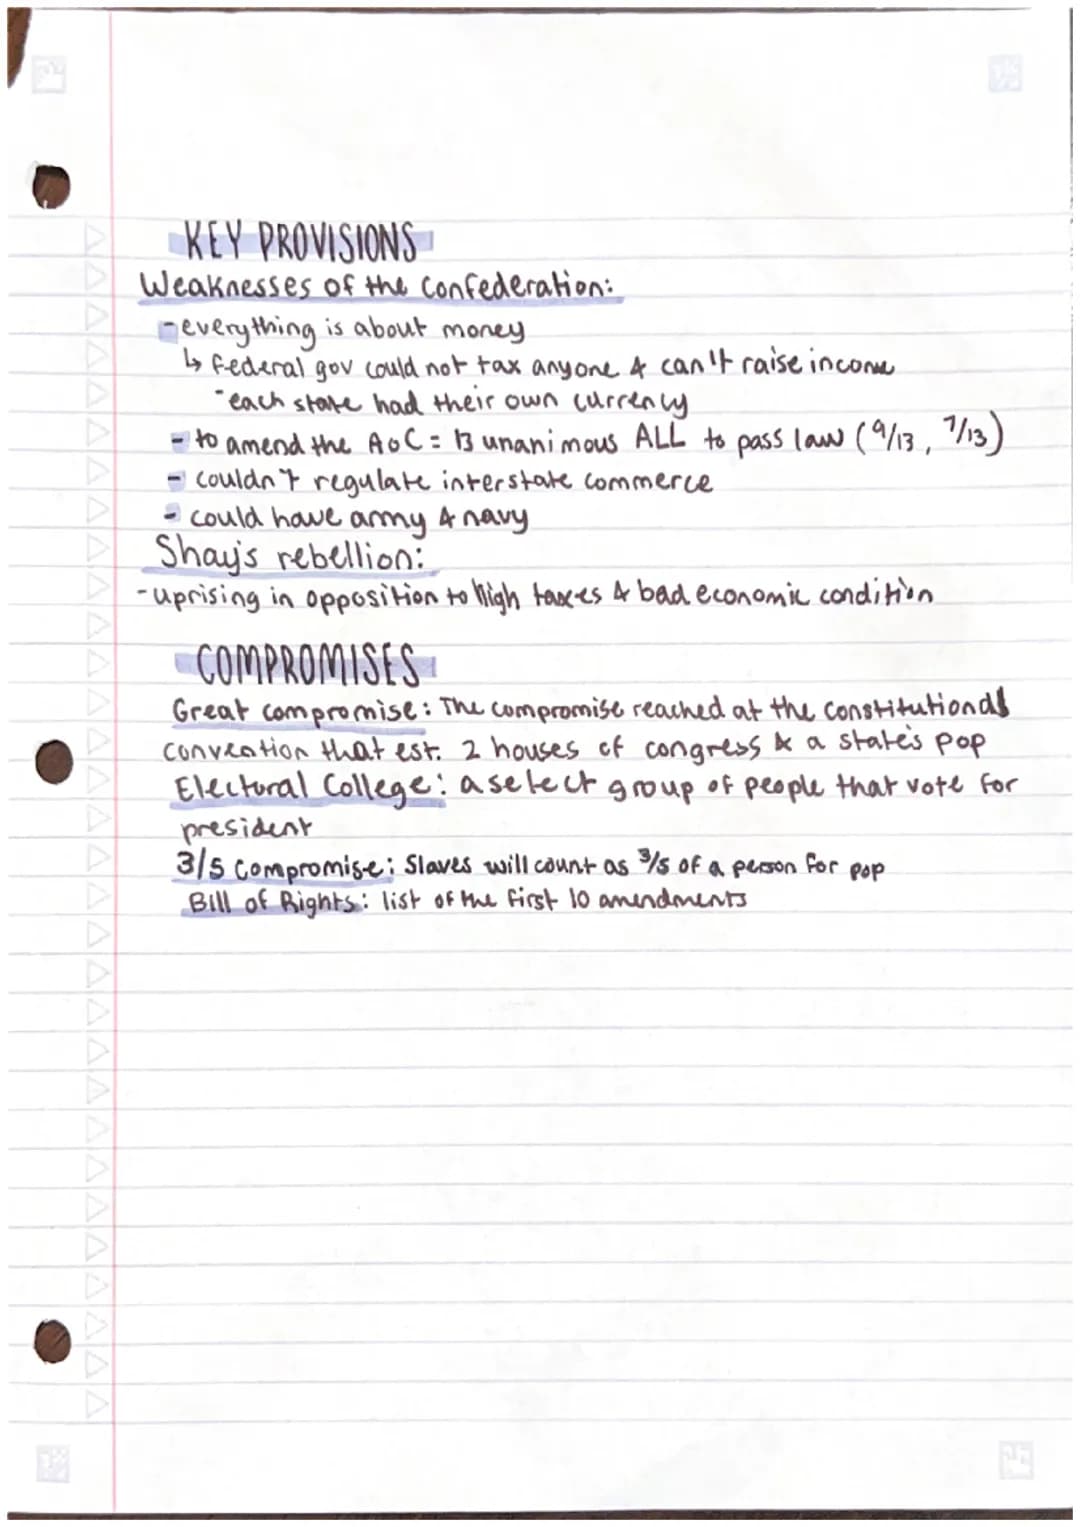 KEY PROVISIONS
Weaknesses of the Confederation:
- everything is about money
↳ federal gov could not tax anyone & can't raise income
- each state had their own currency
- to amend the AoC = 13 unanimous ALL to pass law (9/13, 7/13)
- couldn't regulate interstate commerce
- could have army & navy
Shay's rebellion:
- uprising in opposition to high taxes & bad economic condition
COMPROMISES
Great compromise: The compromise reached at the constitutional
convention that est. 2 houses of congress & a state's pop
Electoral College: a select group of people that vote for
president
3/5 Compromise: Slaves will count as 3/5 of a person for pop
Bill of Rights: list of the first 10 amendments